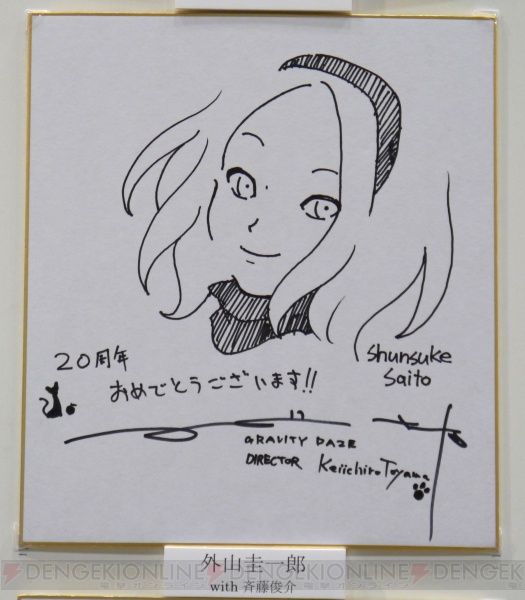 20周年
おめでとうございます!!
Shunsuke
Saito
GRAVITY DAZE
DIRECTOR Keiichiro Toyama
外山圭一郎
with 斉藤俊介
DENGEKIONLINE DENGEKIONLINE DENGEKIONLINE